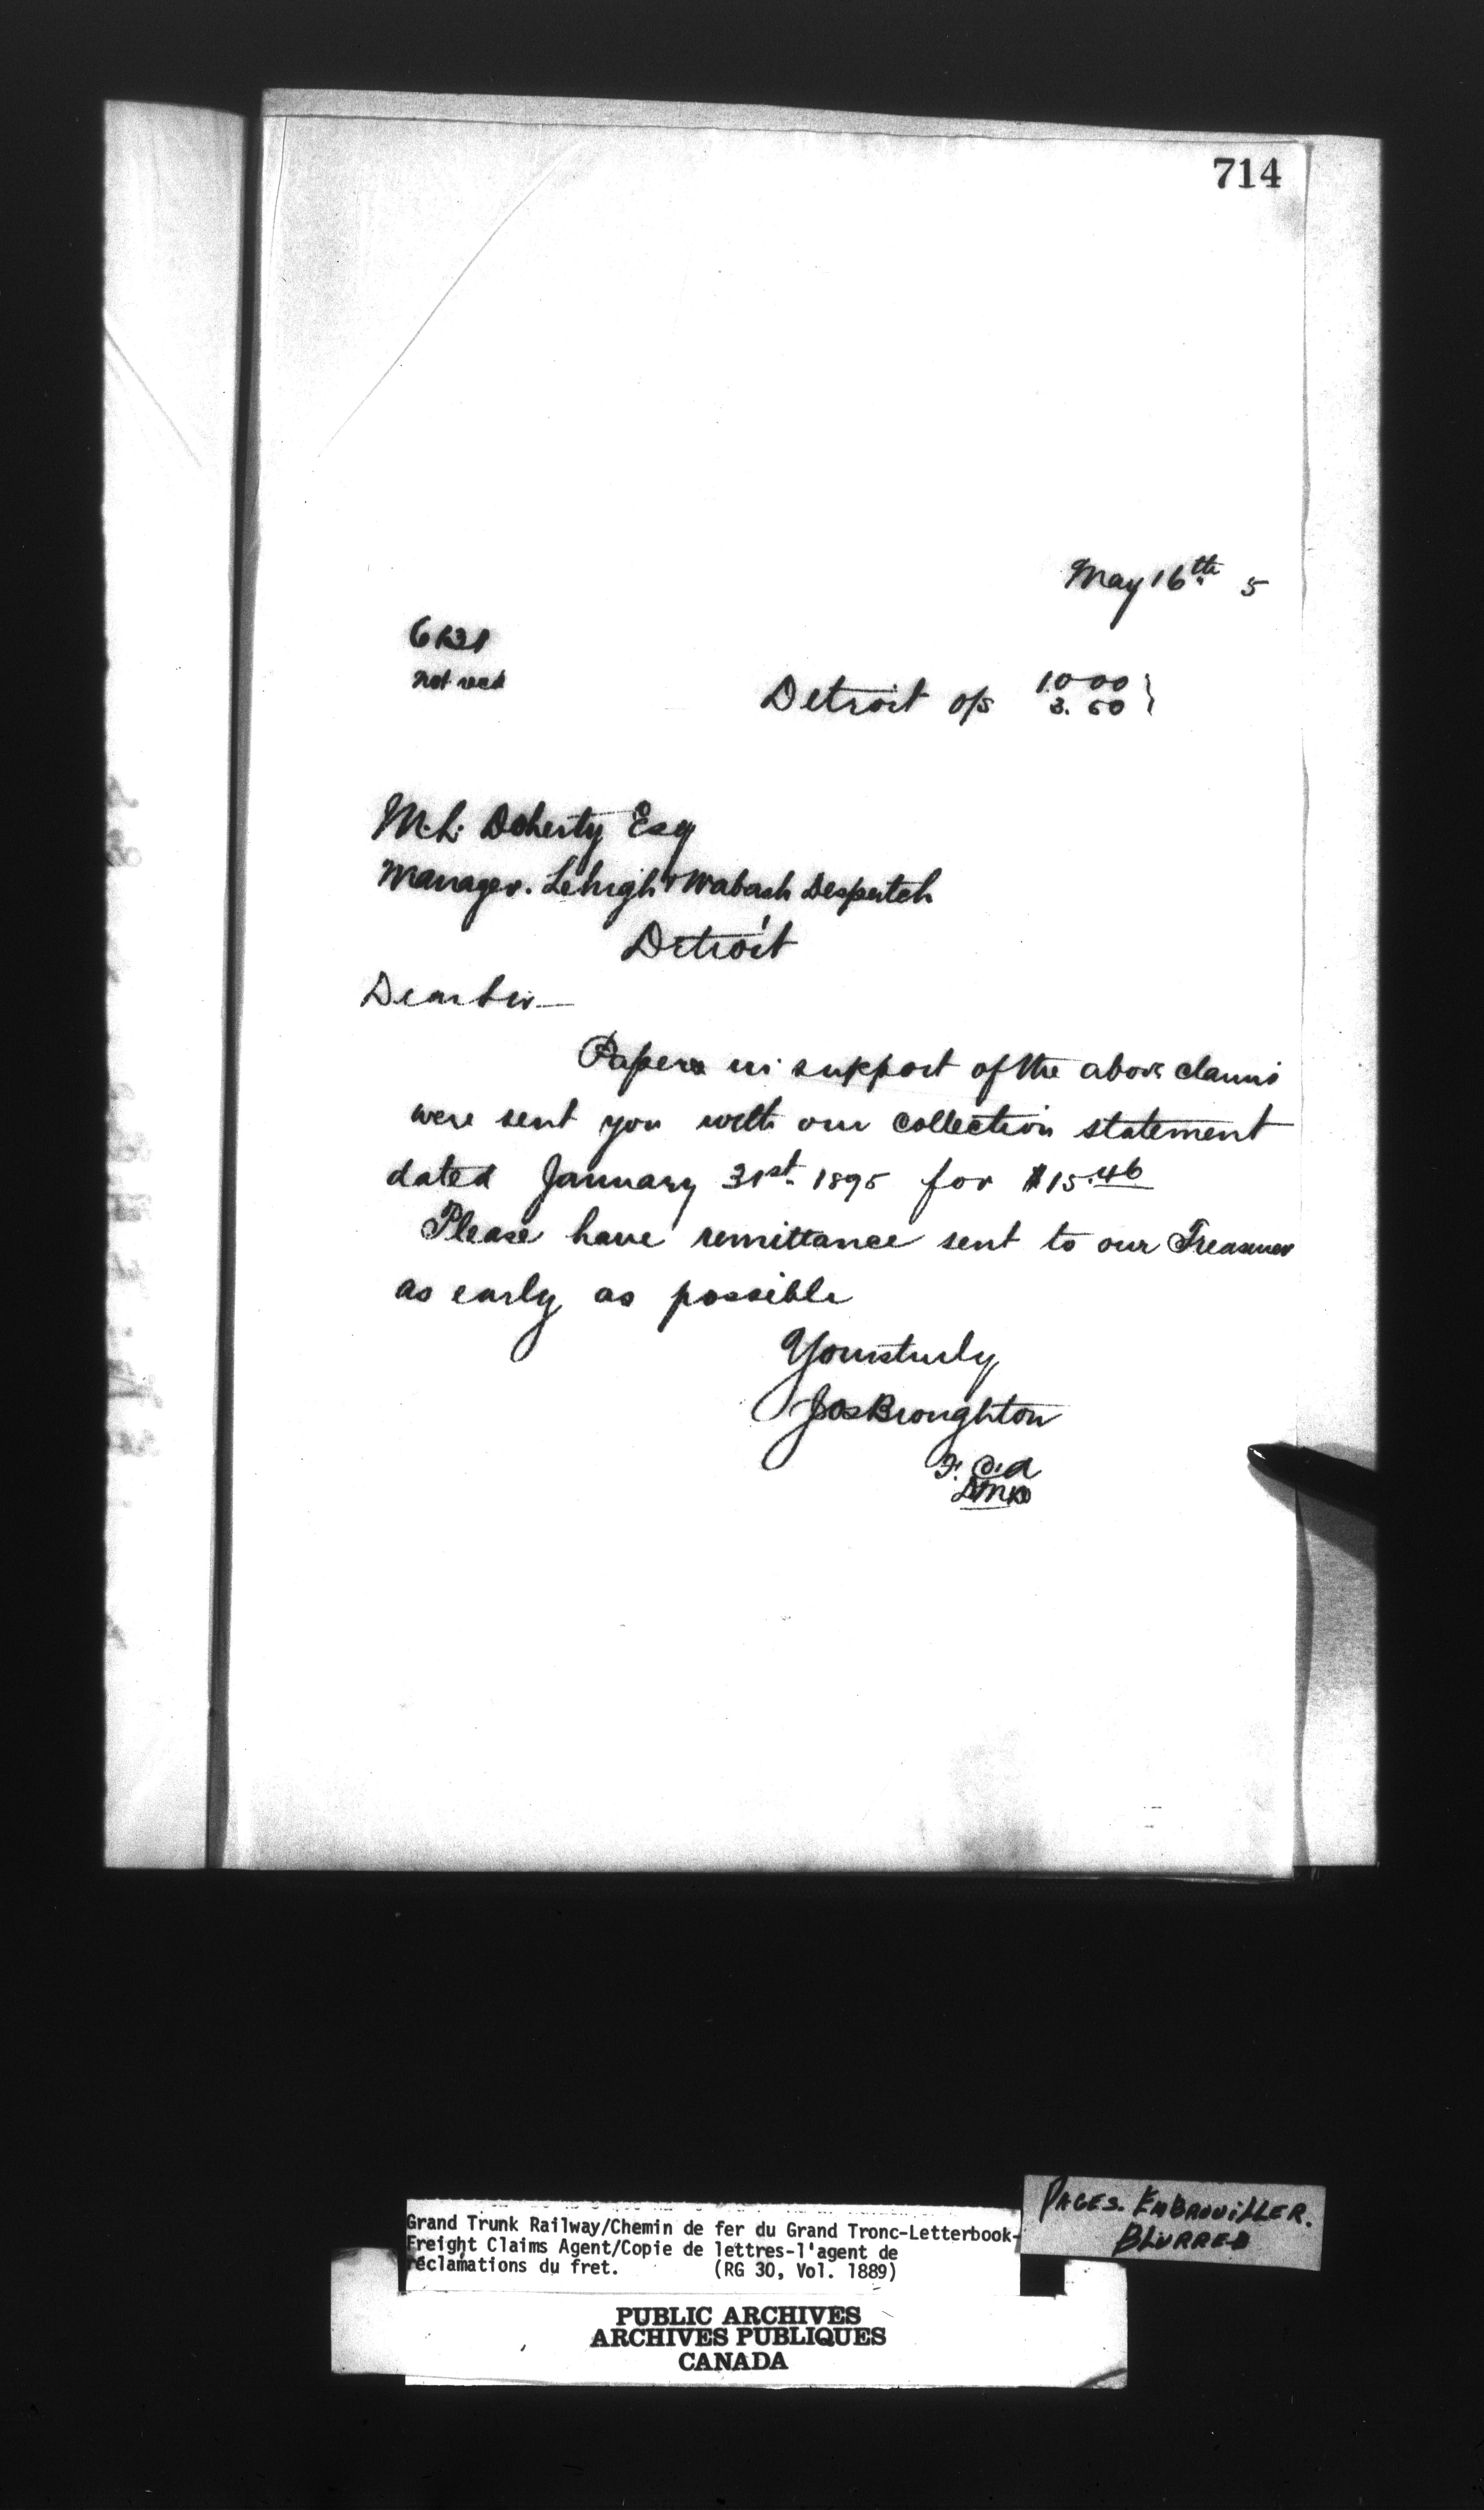 714
May 16th 5
Not recd
Detroit o/s 10 00
3. 50 }
M. L. Doherty Esq
Manager. Lehigh & Wabash Despatch
Detroit
Dear Sir—
Papers in support of the above claims
were sent you with our collection statement
dated January 31st. 1895 for $15.46
Please have remittance sent to our Treasurer
as early as possible
Yours truly
Jos Broughton
F. C. A
PAGES. EMBROUILLER.
BLURRED
Grand Trunk Railway/Chemin de fer du Grand Tronc-Letterbook-
Freight Claims Agent/Copie de lettres-l'agent de
réclamations du fret. (RG 30, Vol. 1889)
PUBLIC ARCHIVES
ARCHIVES PUBLIQUES
CANADA